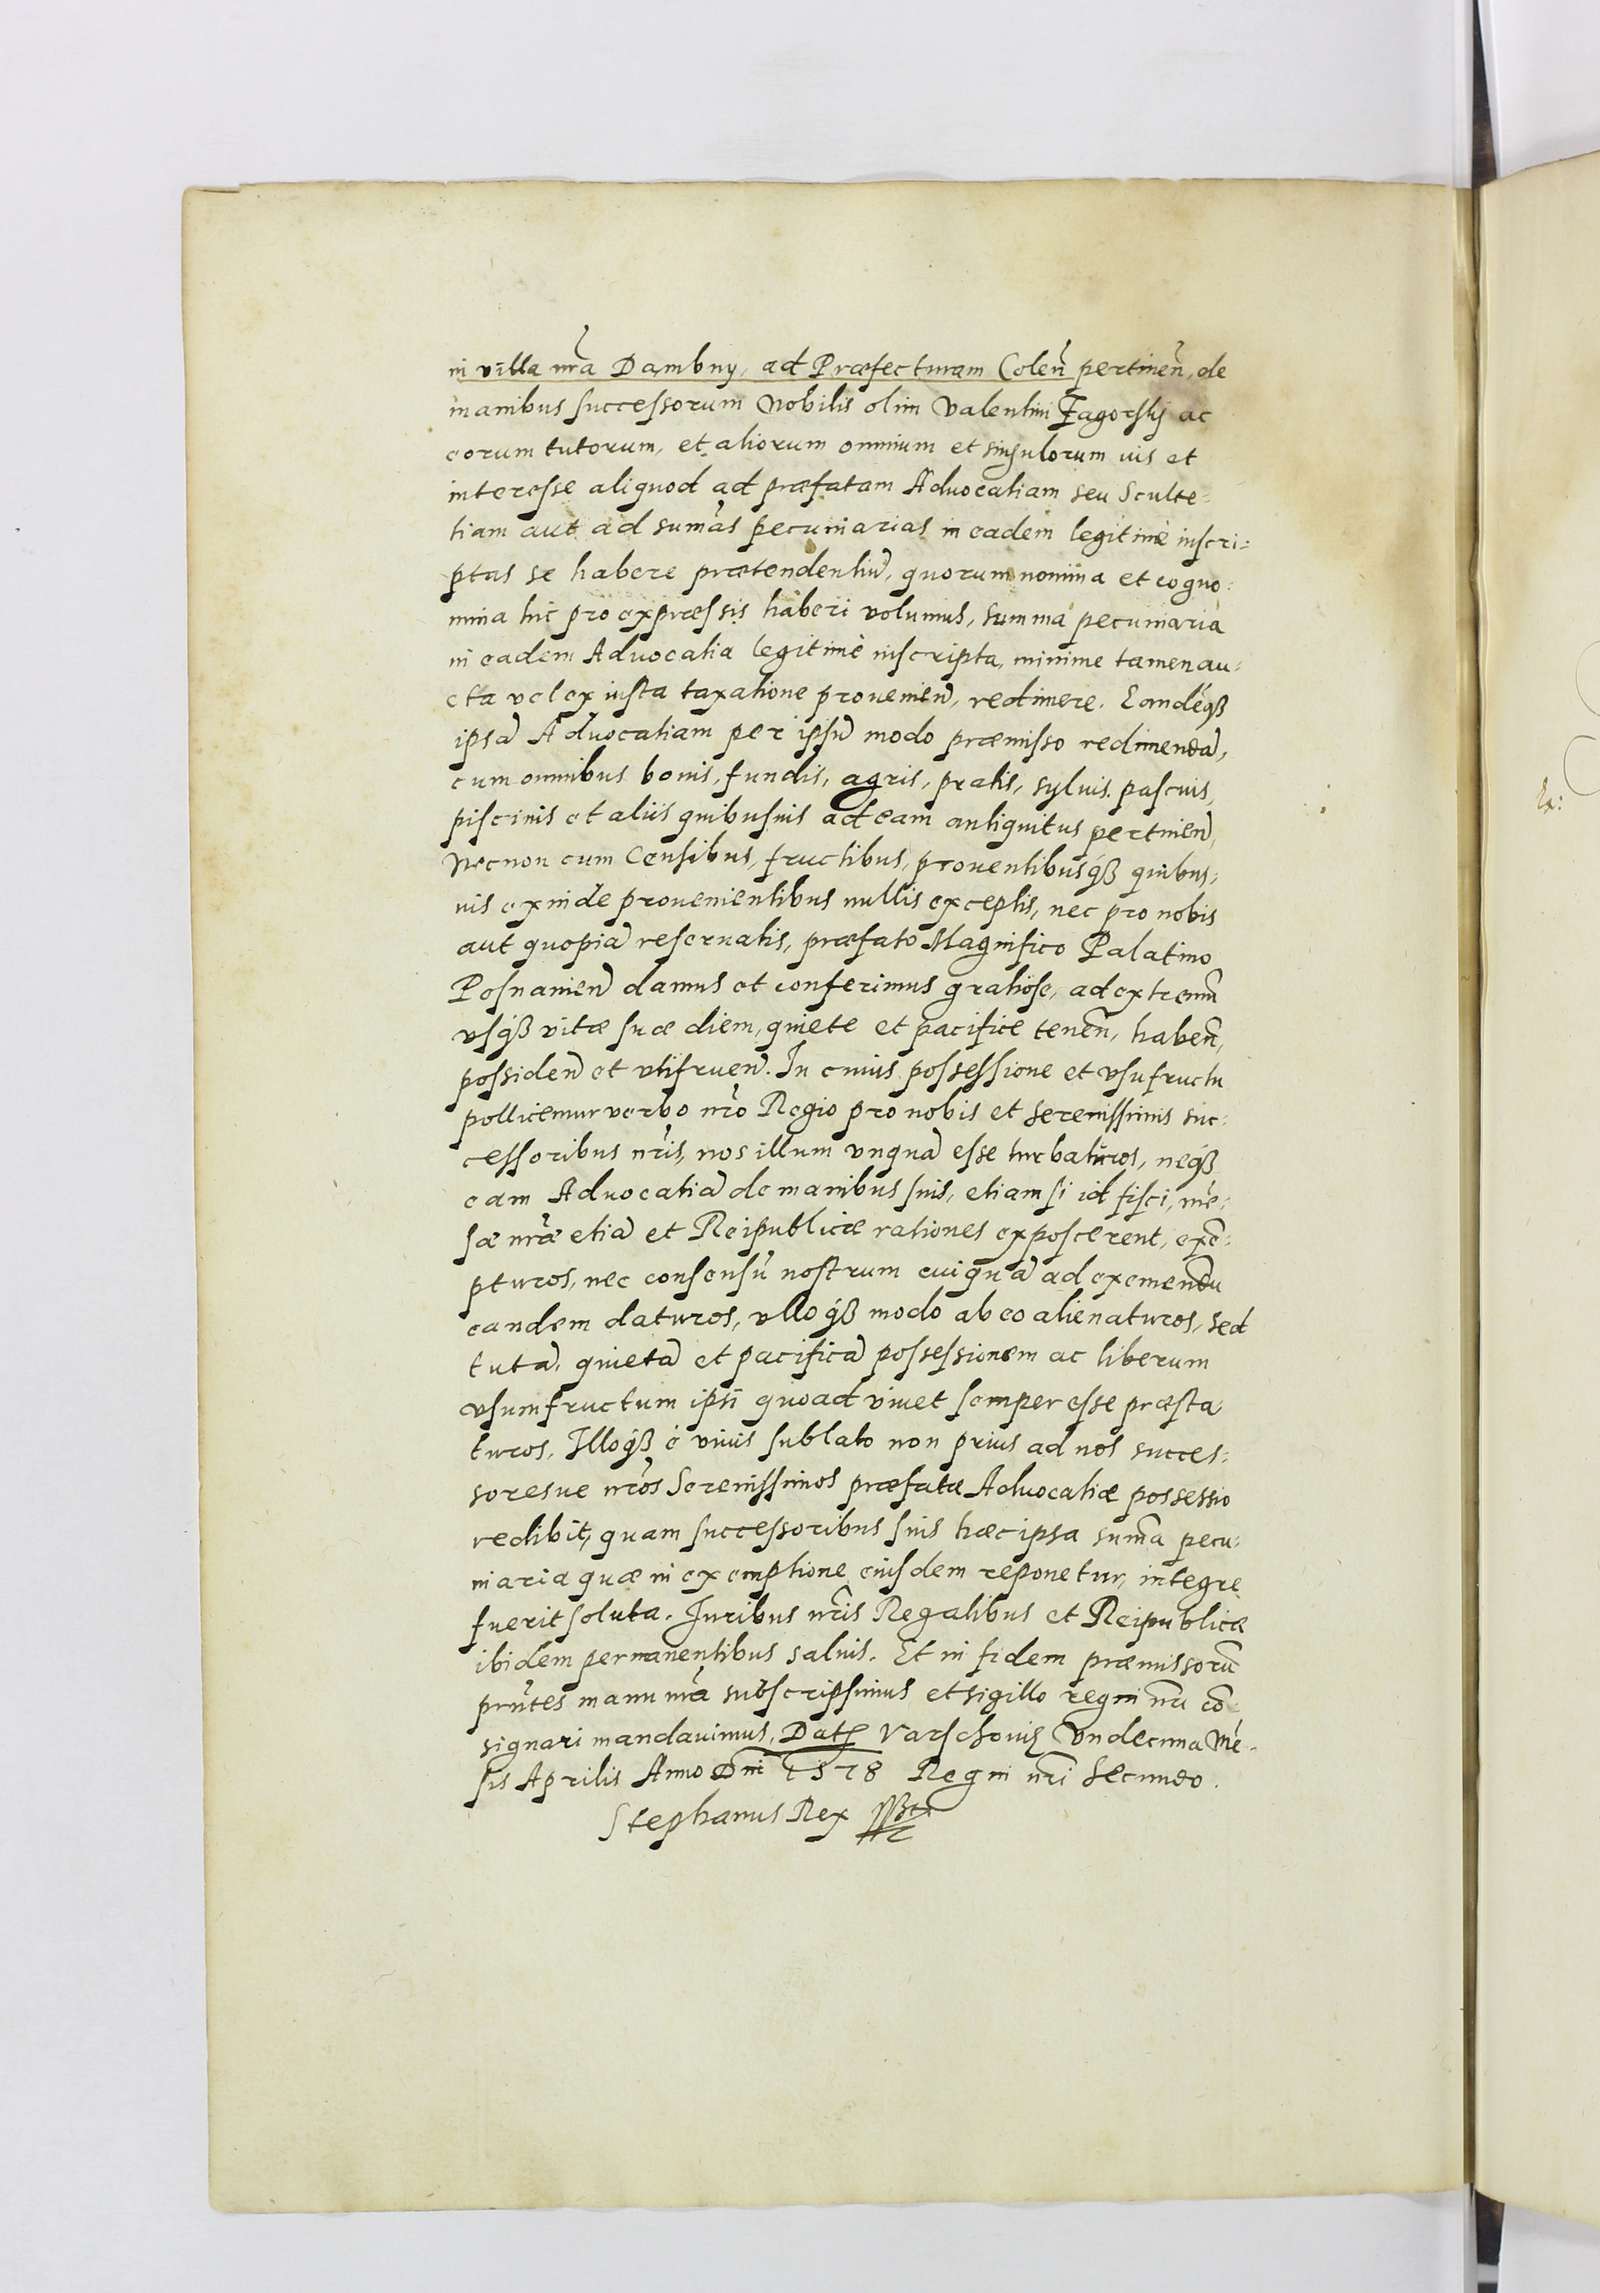 in villa nr̃a Dambny, ad Præfecturam Coleñ pertineñ, de
manibus successorum Nobilis olim Valentini Jagorskij ac
eorum tutorum, et aliorum omnium et singulorum ius et
interesse aliquod ad præfatam Advocatiam seu Sculte-
tiam aut ad sum̃as pecuniarias in eadem legitimè inscri=
ptas se habere prætendentiũ, quorum nomina et cogno=
mina hic pro expressis haberi volumus, summa pecuniaria
in eadem Advocatia legitimè inscripta, minime tamen au=
cta vel ex iusta taxatione provenieñ, redimere. Eandẽq́ꝫ
ipsã Advocatiam per ipsũ modo præmisso redimendã,
cum omnibus bonis, fundis, agris, pratis, sylvis. pascuis,
piscinis et aliis quibusuis ad eam antiquitus pertineñ,
Necnon cum Censibus, fructibus, prouentibusq́ꝫ quibus=
uis exinde prouenientibus nullis exceptis, nec pro nobis
aut quopiã reseruatis, præfato Magnifico Palatino
Posnanieñ damus et conferimus gratiose, ad extremũ
vsq́ꝫ vitæ suæ diem, quiete et pacifice teneñ, habeñ,
possideñ et vtifrueñ. In cuius possessione et vsufructu
pollicemur verbo nr̃o Regio pro nobis et serenissimis suc=
cessoribus nr̃is, nos illum vnquã esse turbaturos, neq́ꝫ
eam Advocatiã de manibus suis, etiam si id fisci, mẽ=
sæ nr̃æ etiã et Reipublicæ rationes exposcerent, exẽ=
pturos, nec consensũ nostrum cuiquã ad exemendũ
eandem daturos, vlloq́ꝫ modo ab eo alienaturos, sed
tutã, quietã et pacificã possessionem ac liberum
vsumfructum ipsi quoad viuet semper esse præsta
turos. Illoq́ꝫ è viuis sublato non prius ad nos succes=
soresue nr̃os Serenissimos præfatæ Advocatiæ possessio
redibit, quam successoribus suis hæc ipsa sum̃a pecu=
niaria quæ in exemptione eiusdem reponetur, integre
fuerit soluta. Juribus nr̃is Regalibus et Reipublicæ
ibidem permanentibus saluis. Et in fidem præmissorũ
prñtes manu nr̃a subscripsimus et sigillo regni nr̃i cõ
signari mandauimus. Datꝭ Varschouiꝭ Vndecima Mẽ=
sis Aprilis Anno Dñi 1578 Regni nr̃i Secundo.
Stephanus Rex
Ex: